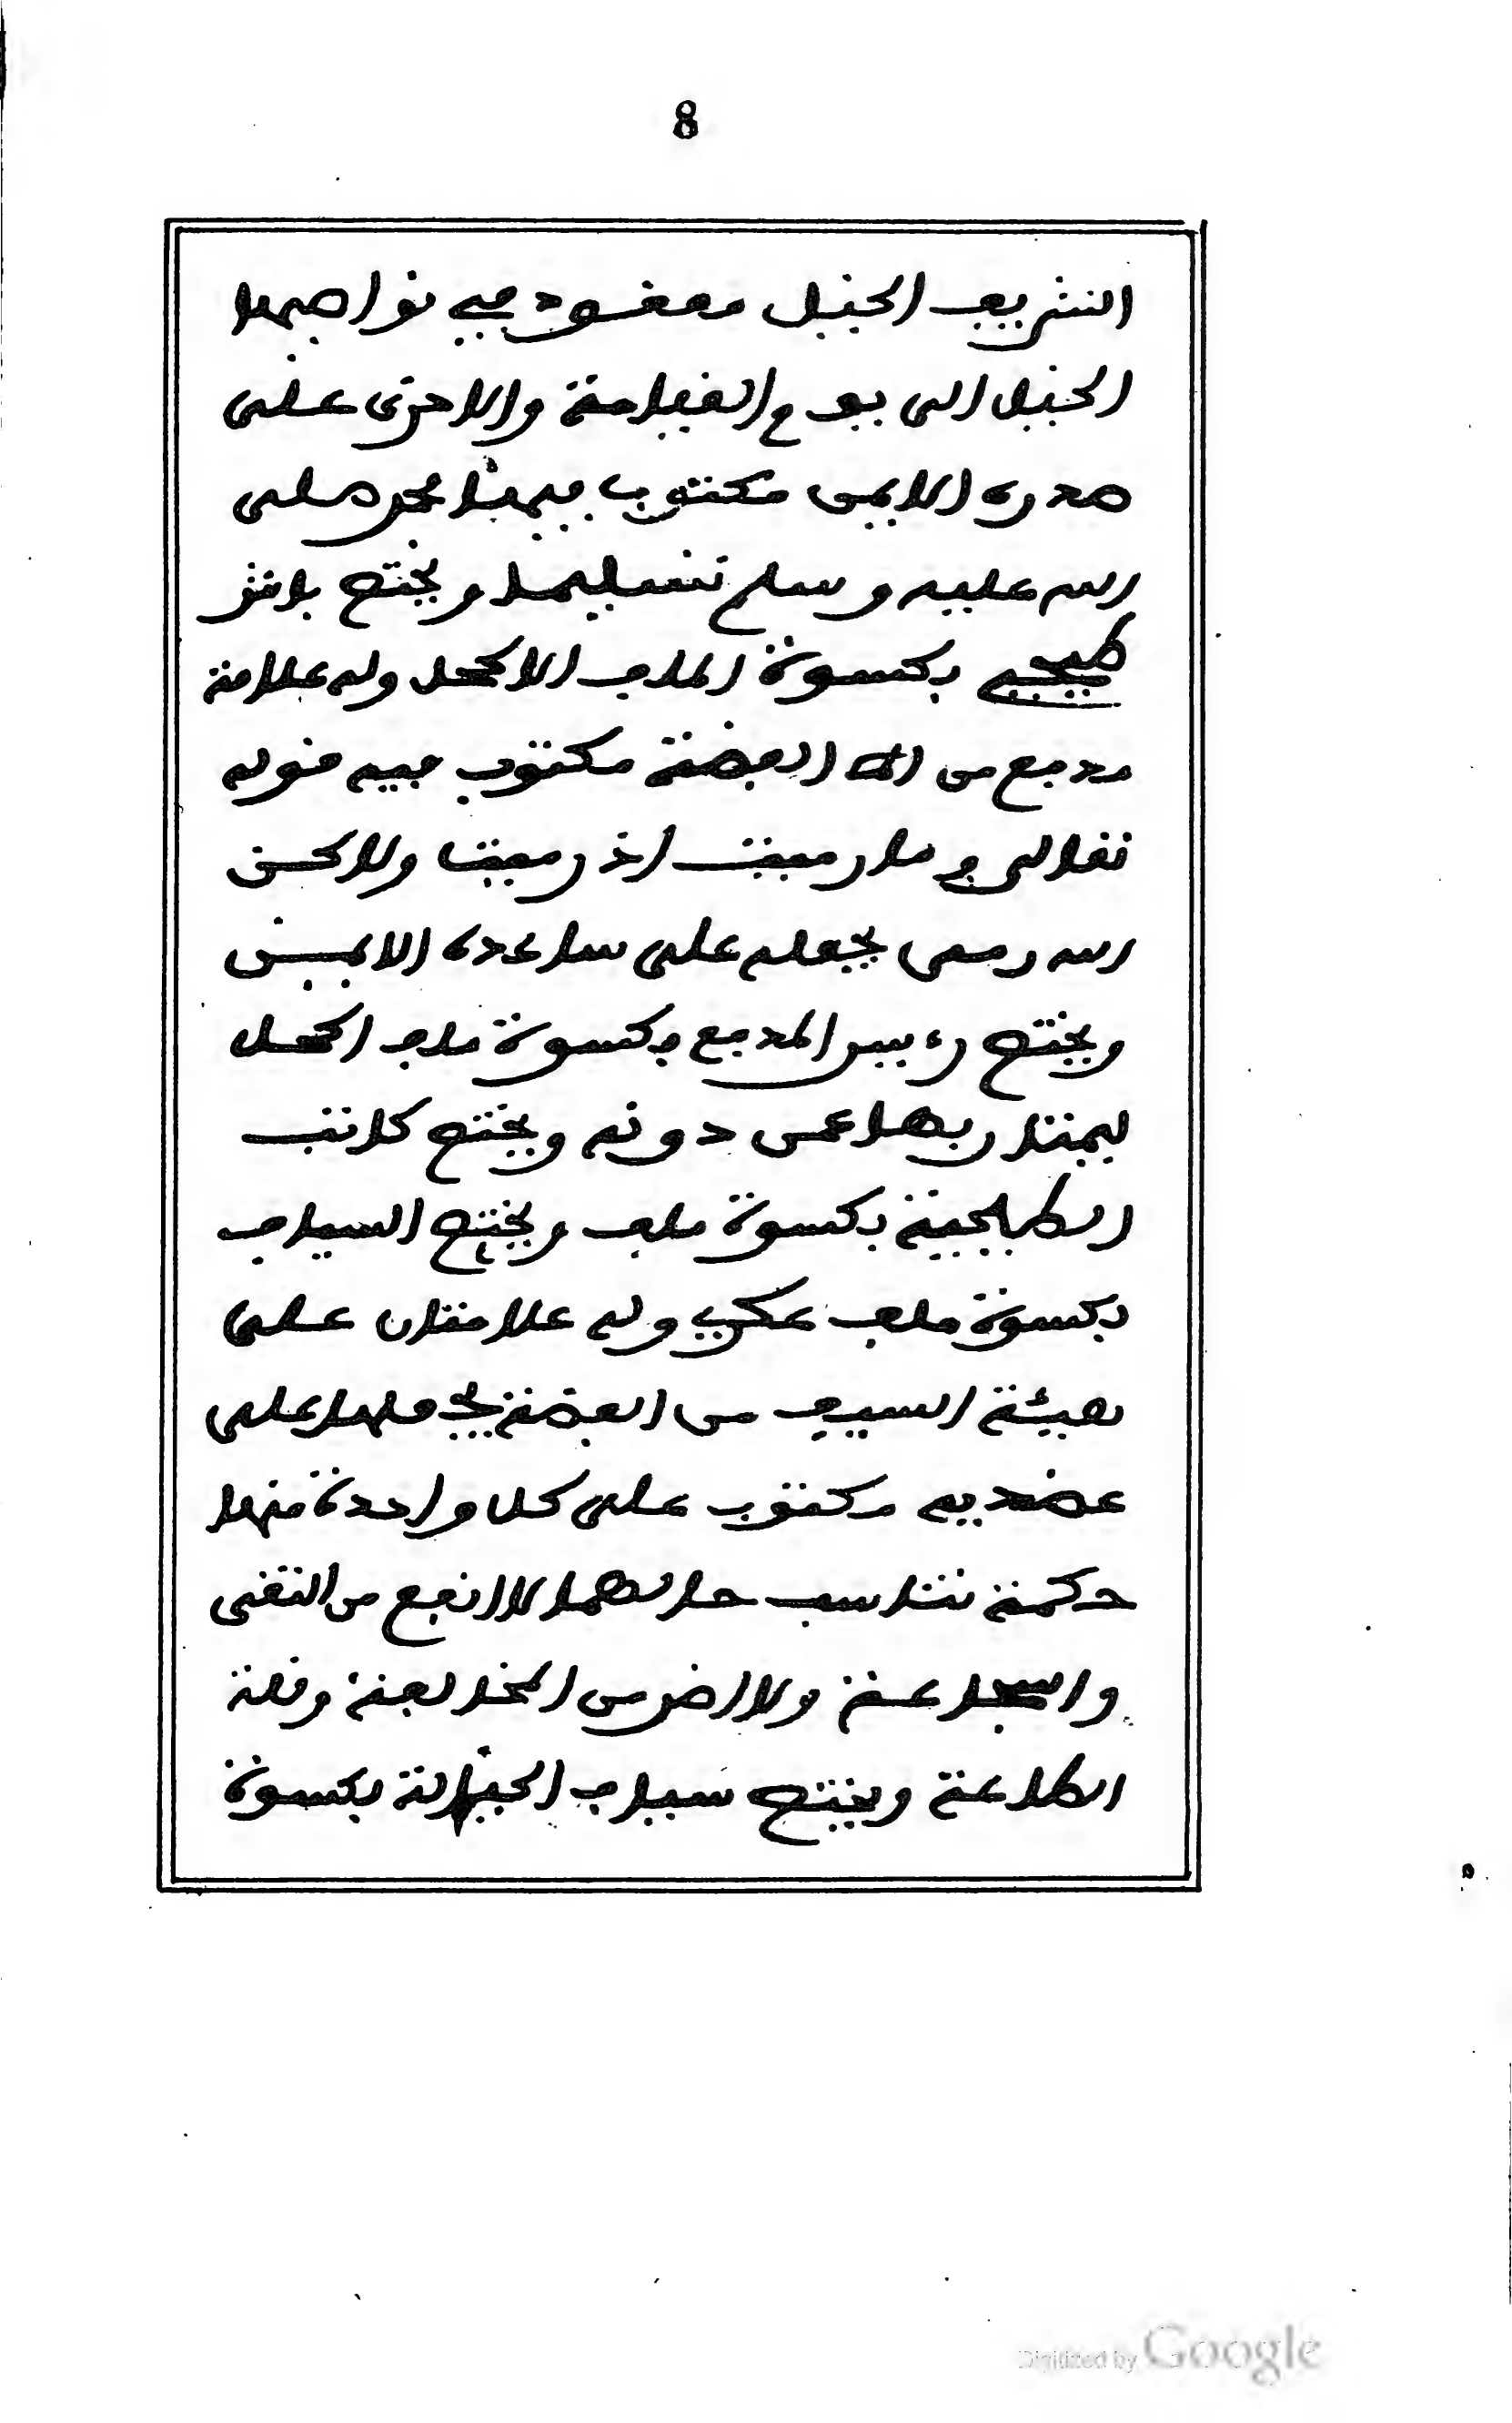 8
الشريف الخيل معقود في نواصيها
الخيل الى يوم القيامة والاخرى على
صدره الايمن مكتوب فيها محمد صلى
الله عليه وسلم تسليما ويختص باش
طبجي بكسوة الملف الاكحل وله علامة
مدفع من الفضة مكتوب فيه قوله
تعالى وما رميت اذ رميت ولاكن
الله رمى يجعله على ساعده الايمن
ويختص رءيس المدفع بكسوة ملف اكحل
ليمتاز بها عمن دونه ويختص كاتب
الطبجية بكسوة ملف ويختص السياف
بكسوة ملف عكري وله علامتان على
هيئة السيف من الفضة يجعلها على
عضديه مكتوب على كل واحدة منها
حكمة تناسب حالهما لا انفع من التقى
والشجاعة ولا اضر من المخالفة وقلة
الطاعة ويختص سياف الخيالة بكسوة
Digitized by Google